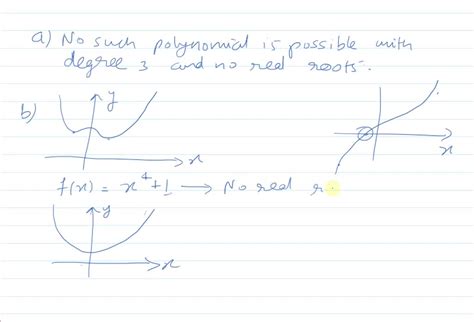 a) No such polynomial is possible with
degree 3 and no real roots.
b)
y
x
x
f(x) = x⁴+1 → No real r
y
x